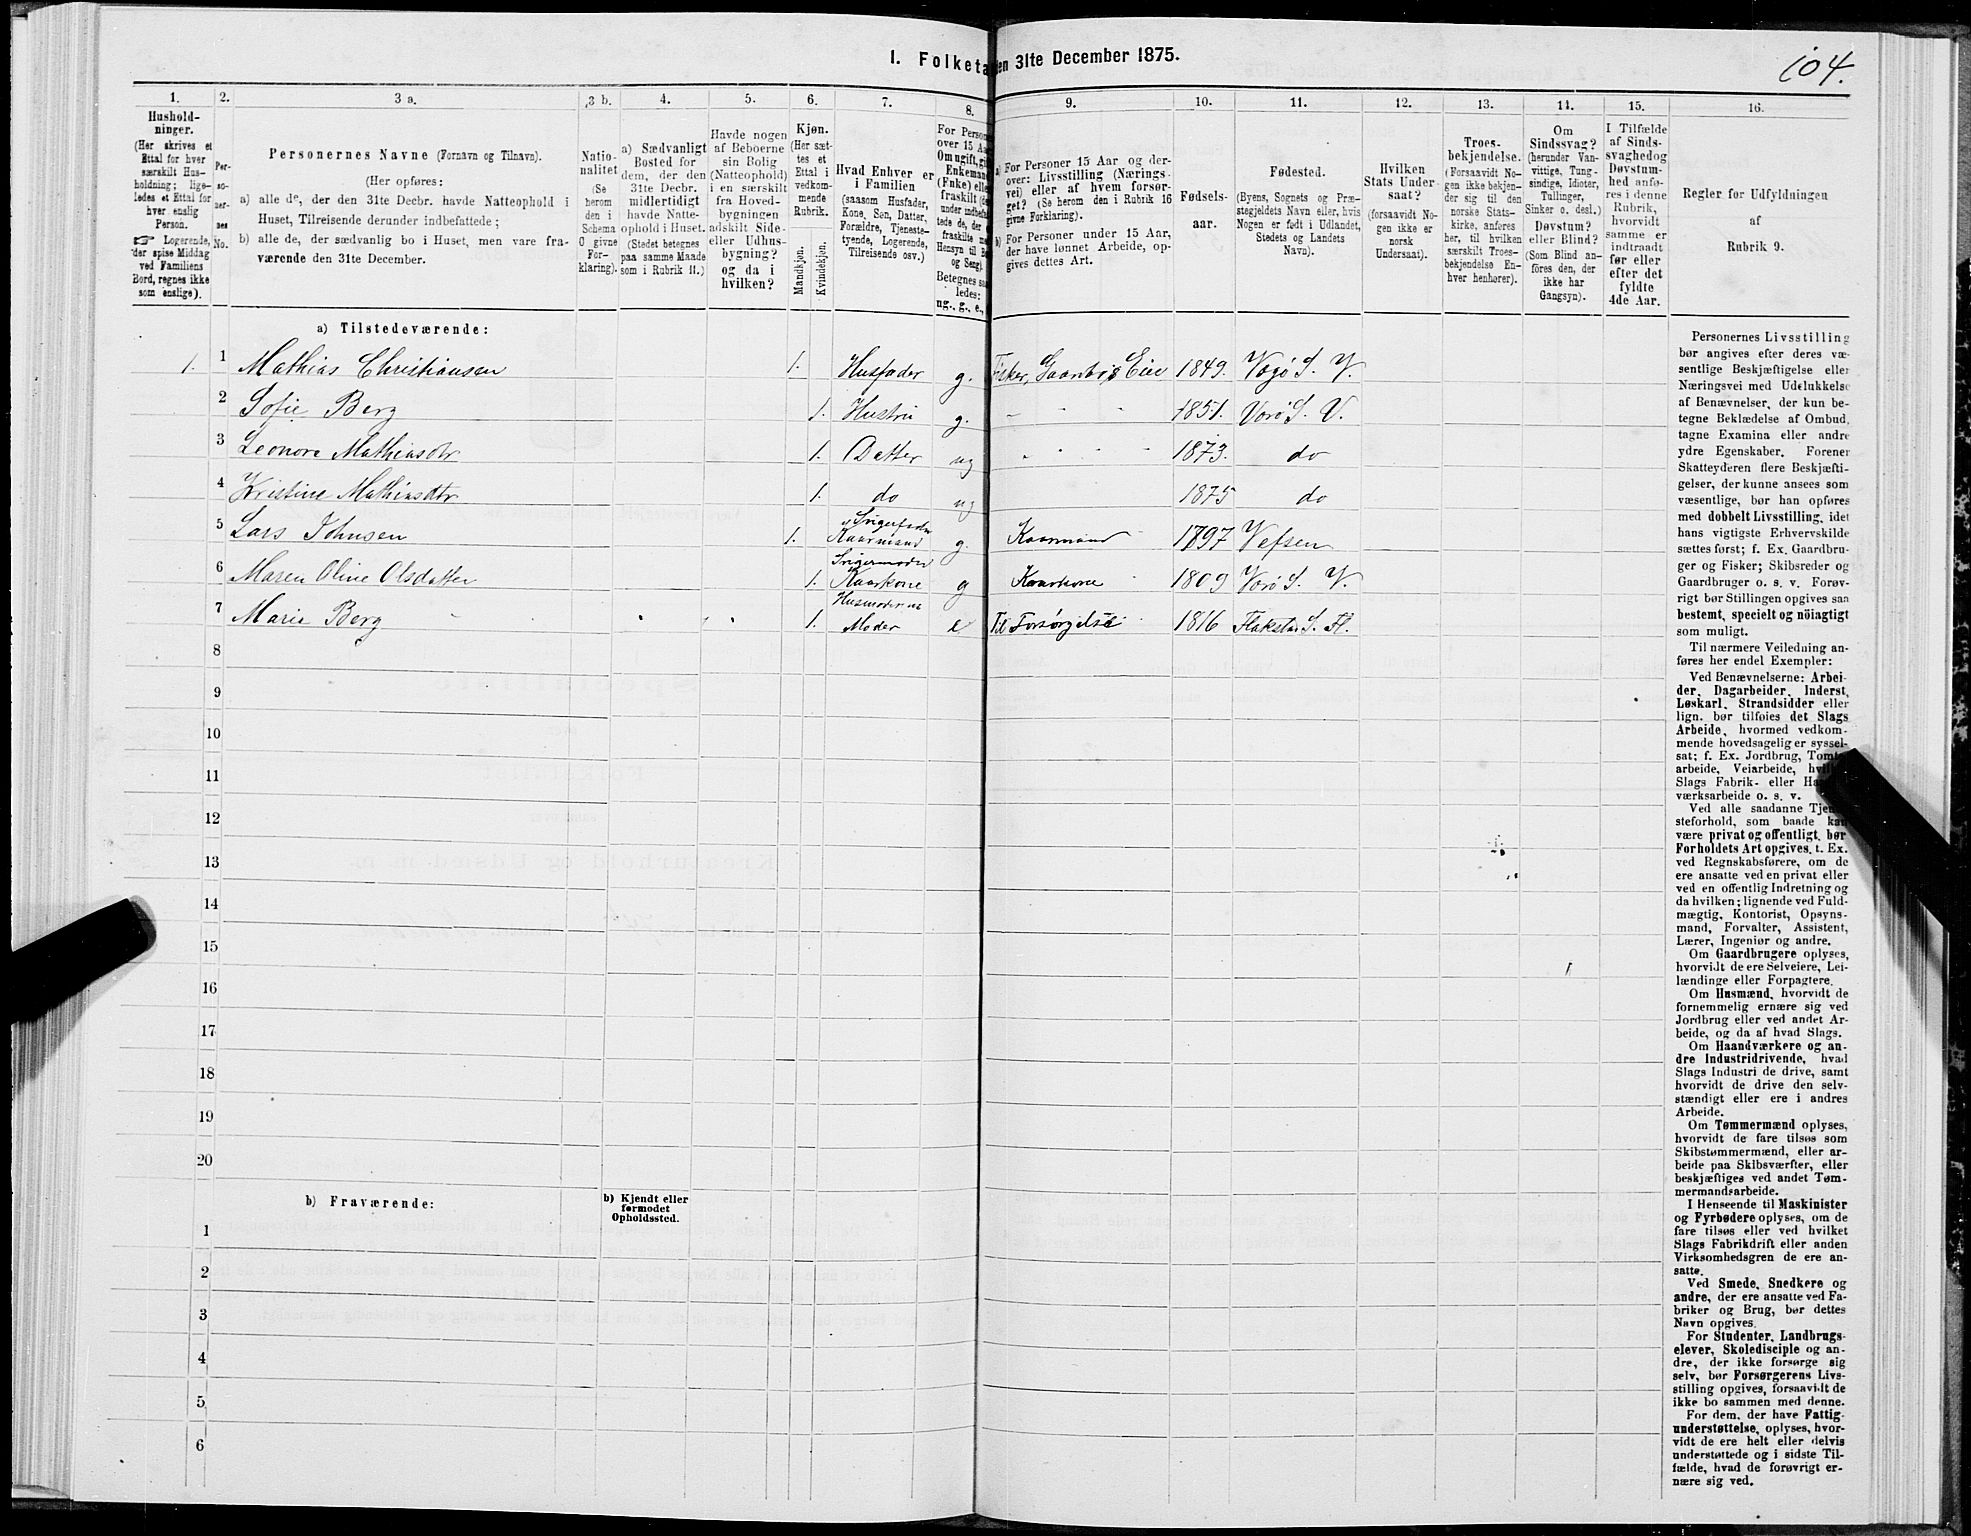 I. Folketa en 31te December 1875.
104.
1.
2.
3 a.
3 b.
4.
5.
6.
7.
8.
9.
10.
11.
12.
13.
14.
15.
16.
Hushold-
ninger.
(Her skrives et
Ettal for hver
særskilt Hus-
holdning; lige-
ledes et Ettal for
hver enslig
Person.
☞ Logerende,
der spise Middag
ved Familiens
Bord, regnes ikke
som enslige).
Per-
so-
ner-
nes
No.
Personernes Navne (Fornavn og Tilnavn).
(Her opføres:
a) alle de, der den 31te Decbr. havde Natteophold i
Huset, Tilreisende derunder indbefattede;
b) alle de, der sædvanlig bo i Huset, men vare fra-
værende den 31te December.
Natio-
nalitet
(Se
herom
den i
Schema
O givne
For-
klaring).
a) Sædvanligt
Bosted for
dem, der den
31te Decbr.
midlertidigt
havde Natte-
ophold i Huset.
(Stedet betegnes
paa samme Maade
som i Rubrik 11.)
Havde nogen
af Beboerne
sin Bolig
(Natteophold)
i en særskilt
fra Hoved-
bygningen
adskilt Side-
eller Udhus-
bygning?
og da i
hvilken?
Kjøn.
(Her sæt-
tes et
Ettal i
vedkom-
mende
Rubrik.
Mandkjøn.
Kvindekjøn.
Hvad Enhver er
i Familien
(saasom Husfader,
Kone, Søn, Datter,
Forældre, Tjeneste-
tyende, Logerende,
Tilreisende osv.)
For Person
over 15 Aa
Om ugift, gif
Enkemand
(Enke) elle
fraskilt (de
under indbefat
tede de, der e
fraskilte me
Hensyn til Bo
og Seng).
Betegnes saa
ledes:
ug., g., e.,
a) For Personer 15 Aar og der-
over: Livsstilling (Nærings-
vei) eller af hvem forsør-
get? (Se herom den i Rubrik 16
givne Forklaring).
b) For Personer under 15 Aar,
der have lønnet Arbeide, op-
gives dettes Art.
Fødsels-
aar.
Fødested.
(Byens, Sognets og Præ-
stegjeldets Navn eller, hvis
Nogen er født i Udlandet,
Stedets og Landets
Navn).
Hvilken
Stats Under-
saat?
(forsaavidt No-
gen ikke er
norsk
Undersaat).
Troes-
bekjendelse.
(Forsaavidt No-
gen ikke bekjen-
der sig til den
norske Stats-
kirke, anføres
her, til hvilken
særskilt Troes-
bekjendelse En-
hver henhører).
Om
Sindssvag?
(herunder Van-
vittige, Tung-
sindige, Idioter,
Tullinger,
Sinker o. desl.)
Døvstum?
eller Blind?
(Som Blind an-
føres den, der
ikke har
Gangsyn).
I Tilfælde
af Sinds-
svaghed og
Døvstum-
hed anfø-
res i denne
Rubrik,
hvorvidt
samme er
indtraadt
før eller
efter det
fyldte
4de Aar.
Regler for Udfyldningen
af
Rubrik 9.
a) Tilstedeværende:
1. 1 Mathias Christiansen 1. Husfader g. Fisker, Gaardbr, Eier 1849. Vægø S. V.
2 Sofie Berg 1. Hustru g. 1851. Værø S. V.
3 Leonora Mathiasdtr 1. Datter ug 1873. do
4 Kristine Mathiasdtr 1. do ug 1875 do
5 Lars Johnsen 1. Svigerfader Kaarmand g. Kaarmand 1797 Vefsen
6 Maren Oline Olsdatter 1. Svigermoder Kaarkone g Kaarkone 1809 Værø S. V.
7 Marie Berg 1. Husmoderens Moder e Til Forsørgelse 1816 Flakstad S. Fl.
8
9
10
11
12
13
14
15
16
17
18
19
20
b) Fraværende:
b) Kjendt eller
formodet
Opholdssted.
1
2
3
4
5
6
Personernes Livsstilling
bør angives efter deres væ-
sentlige Beskjæftigelse eller
Næringsvei med Udelukkelse
af Benævnelser, der kun be-
tegne Beklædelse af Ombud,
tagne Examina eller andre
ydre Egenskaber. Forener
Skatteyderen flere Beskjæfti-
gelser, der kunne ansees som
væsentlige, bør han opføres
med dobbelt Livsstilling, idet
hans vigtigste Erhvervskilde
sættes først; f. Ex. Gaardbru-
ger og Fisker; Skibsreder og
Gaardbruger o. s. v. Forøv-
rigt bør Stillingen opgives saa
bestemt, specielt og nöiagtigt
som muligt.
Til nærmere Veiledning an-
føres her endel Exempler:
Ved Benævnelserne: Arbei-
der, Dagarbeider, Inderst,
Løskarl, Strandsidder eller
lign. bør tilføies det Slags
Arbeide, hvormed vedkom-
mende hovedsagelig er syssel-
sat; f. Ex. Jordbrug, Tomt-
arbeide, Veiarbeide,
Slags Fabrik- eller
værksarbeide o. s. v.
Ved alle saadanne
steforhold, som baade kan
være privat og offentligt, bør
Forholdets Art opgives, t. Ex.
ved Regnskabsførere, om de
ere ansatte ved en privat eller
ved en offentlig Indretning og
da hvilken; lignende ved Fuld-
mægtig, Kontorist, Opsyns-
mand, Forvalter, Assistent,
Lærer, Ingeniør og andre.
Om Gaardbrugere oplyses,
hvorvidt de ere Selveiere, Lei-
lændinge eller Forpagtere.
Om Husmænd, hvorvidt de
fornemmelig ernære sig ved
Jordbrug eller ved andet Ar-
beide, og da af hvad Slags.
Om Haandværkere og an-
dre Industridrivende, hvad
Slags Industri de drive, samt
hvorvidt de drive den selv-
stændigt eller ere i andres
Arbeide.
Om Tømmermænd oplyses,
hvorvidt de fare tilsøs som
Skibstømmermænd, eller ar-
beide paa Skibsværfter, eller
beskjæftiges ved andet Tøm-
mermandsarbeide.
I Henseende til Maskinister
og Fyrbødere oplyses, om de
fare tilsøs eller ved hvilket
Slags Fabrikdrift eller anden
Virksomhedsgren de ere an-
satte.
Ved Smede, Snedkere og
andre, der ere ansatte ved Fa-
briker og Brug, bør dettes
Navn opgives.
For Studenter, Landbrugs-
elever, Skoledisciple og an-
dre, der ikke forsørge sig
selv, bør Forsørgerens Livs-
stilling opgives, forsaavidt de
ikke bo sammen med denne.
For dem, der have Fattig-
understøttelse, oplyses, hvor-
vidt de ere helt eller delvis
understøttede og i sidste Til-
fælde, hvad de forøvrigt er-
nære sig ved.